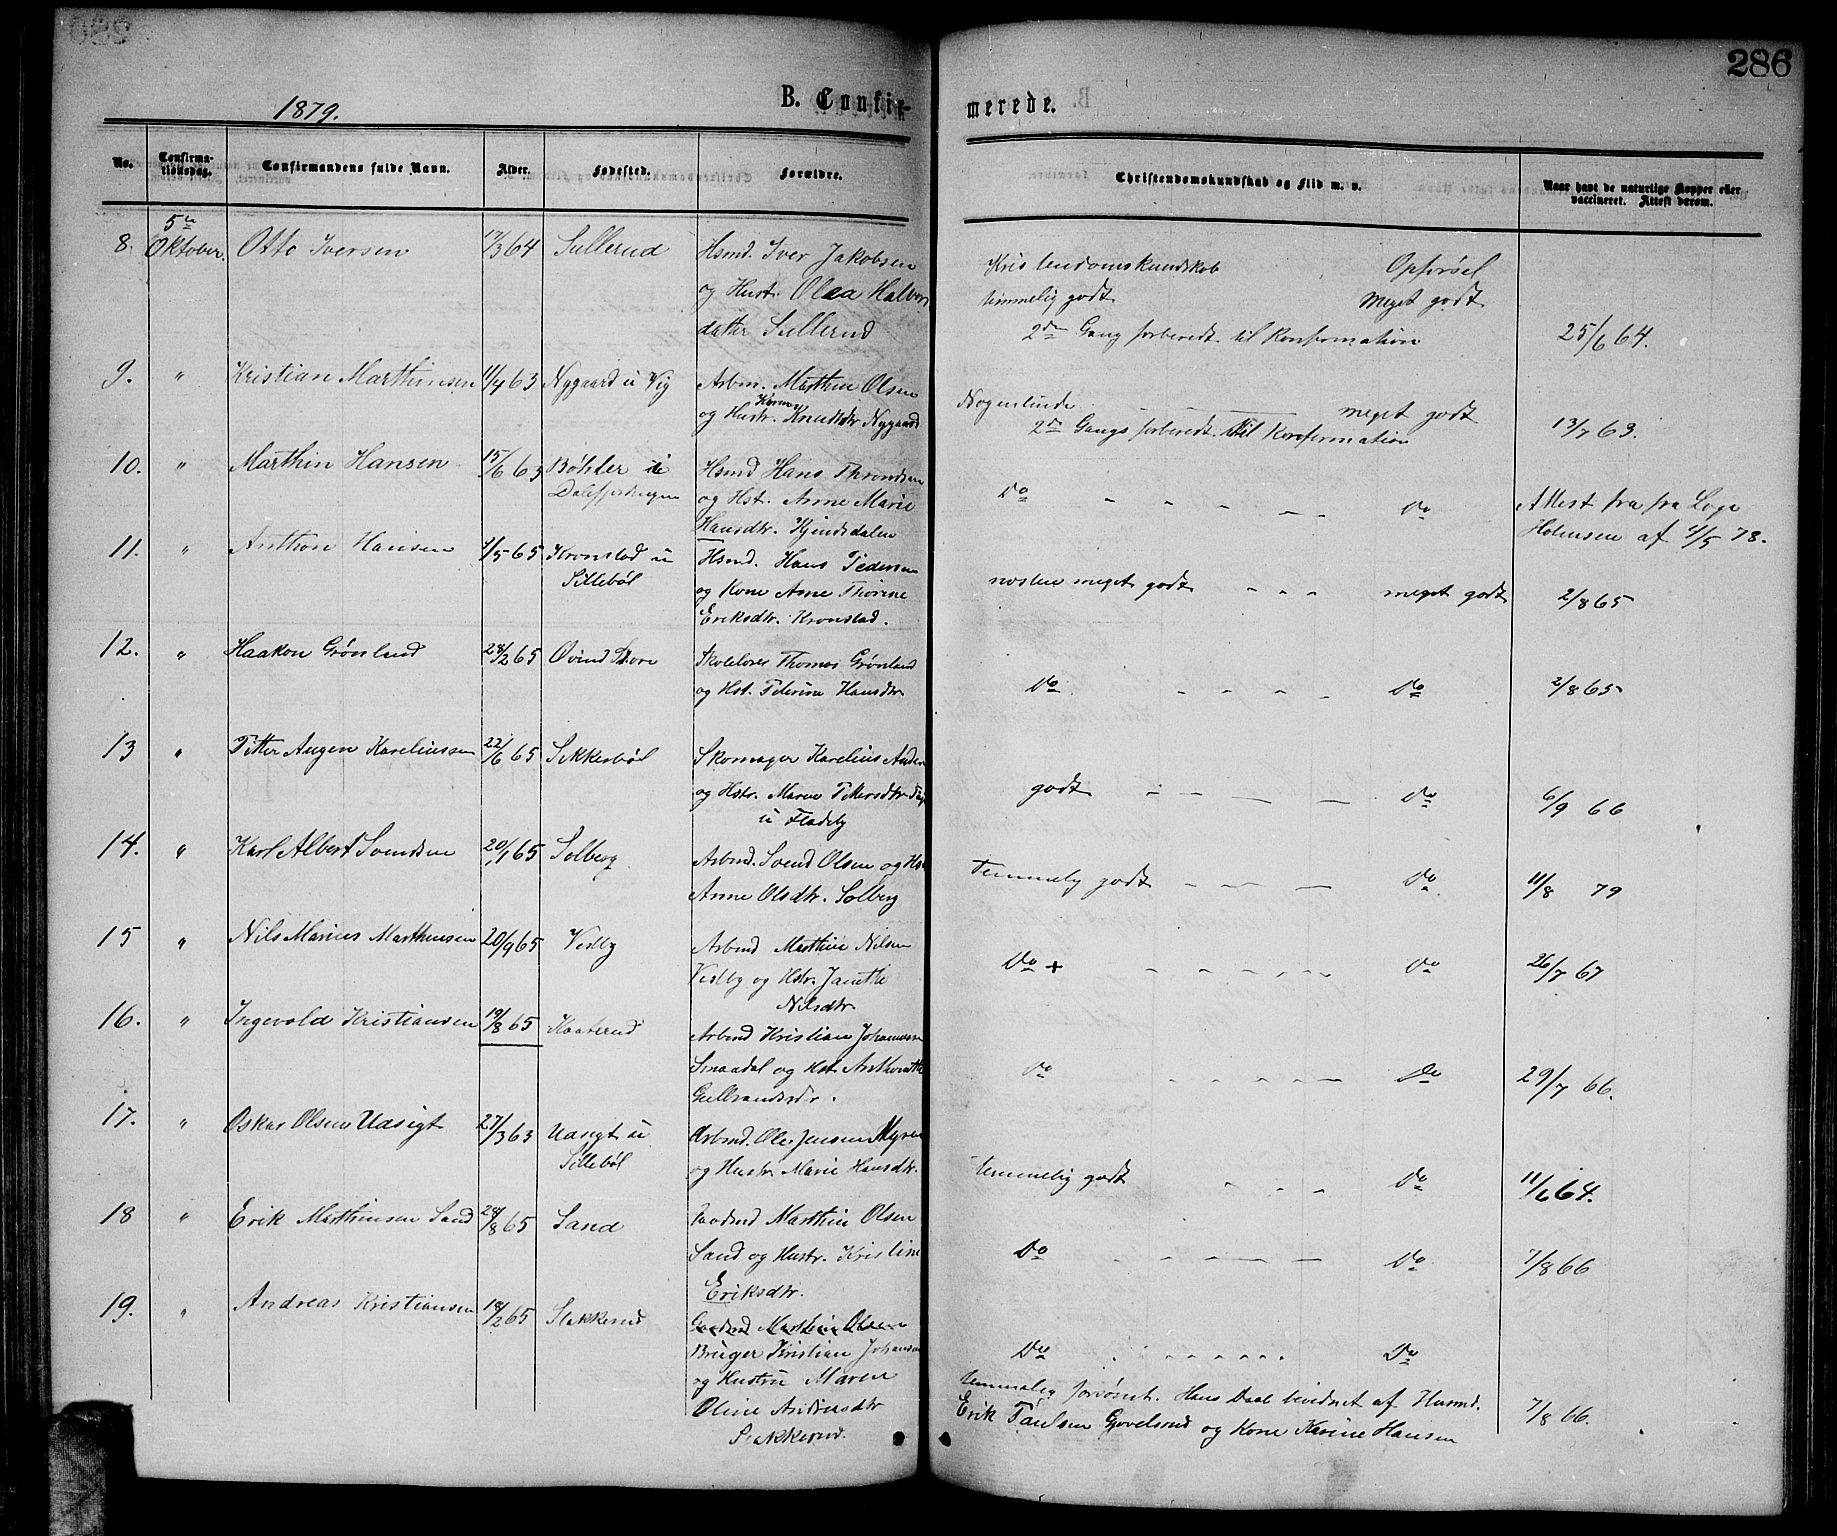 286
1879.
B. Confir-
merede.
No.
Confirma-
tionsdag.
Confirmandens fulde Navn.
Alder.
Fødested.
Forældre.
Christendomskundskab og Flid m. v.
Naar havt de naturlige Kopper eller
vaccineret. Attest derom.
5te
8. Oktober. Otto Iversen 17/3 64 Sullerud Hsmd. Iver Jakobsen
og Hust. Olea Halvors
datter Sullerud
Kristendomskundskab Opførsel
temmelig godt Meget godt
2den Gang forberedt til Konfirmation 25/6 64.
9. " Kristian Marthinsen 11/4 63 Nygaard u Vig Arbm. Marthin Olsen
og Hustr. Karen Knutsdtr Nygaard
Nogenlunde - - meget godt
2den Gangs forberedt til Konfirmation 13/7 63.
10. " Marthin Hansen 15/6 63 Bøhler u
Dalefjerdingen
Hsmd Hans Throndsen
og Hst. Anne Marie
Hansdtr. Kjindsdalen
Do - - - - - Do Attest fra fra Læge
Holmsen af 1/5 78.
11. " Anthon Hansen 1/5 65 Kronstad u
Sillebøl
Hsmd. Hans Pedersen
og Kone Anne Thorine
Eriksdtr. Kronstad.
næsten meget godt - - - meget godt 2/8 65
12. " Haakon Grønland 28/2 65 Øvind Store Skolelærer Thomas Grønland
og Hst. Peterine Hansdtr.
Do - - - - Do 2/8 65
13 " Petter Augen Kareliussen 22/6 65 Sikkerbøl Skomager Karelius Ander
og Hstr. Maren Pettersdtr.
u Fladeby
godt - - - - Do 6/9 66
14. " Karl Albert Svendsen 20/1 65 Solberg Arbmd. Svend Olsen og Hst
Anne Olsdtr. Solberg
Temmelig godt - - - - Do 11/8 79
15 " Nils Marius Marthinsen 20/9 65 Vestby Arbmd Marthin Nilsen
Vestby og Hstr. Janette
Nilsdtr
Do + - - - - - Do 26/7 67
16. " Ingevald Kristiansen 19/8 65 Kaaterud Arbmd Kristian Johannessen
Smaadal og Hst. Anthonette
Gulbrandsdr.
Do - - - - - Do 29/7 66.
17. " Oskar Olsen Udsigt 27/3 63 Udsigt u
Sillebøl
Arbmd. Ole Jensen Myren
og Hustr. Marie Hansdtr.
temmelig godt - - - Do 11/6 64.
18 " Erik Marthinsen Sand 28/8 65 Sand Gaadmd Marthin Olsen
Sand og Hustr. Kristine
Eriksdtr.
Do - - - - - Do 7/8 66
19. " Andreas Kristiansen 18/2 65 Stakkerud Gaadmd Marthin Olsen
Bruger Kristian Johansen
og Hustru Maren
Oline Andersdtr
Stakkerud.
Do - - - - - - Do
temmelig forsømt. Hans Daab bevidnet af Husmd.
Erik Paulsen og Kone Karine Hansen 7/8 66.